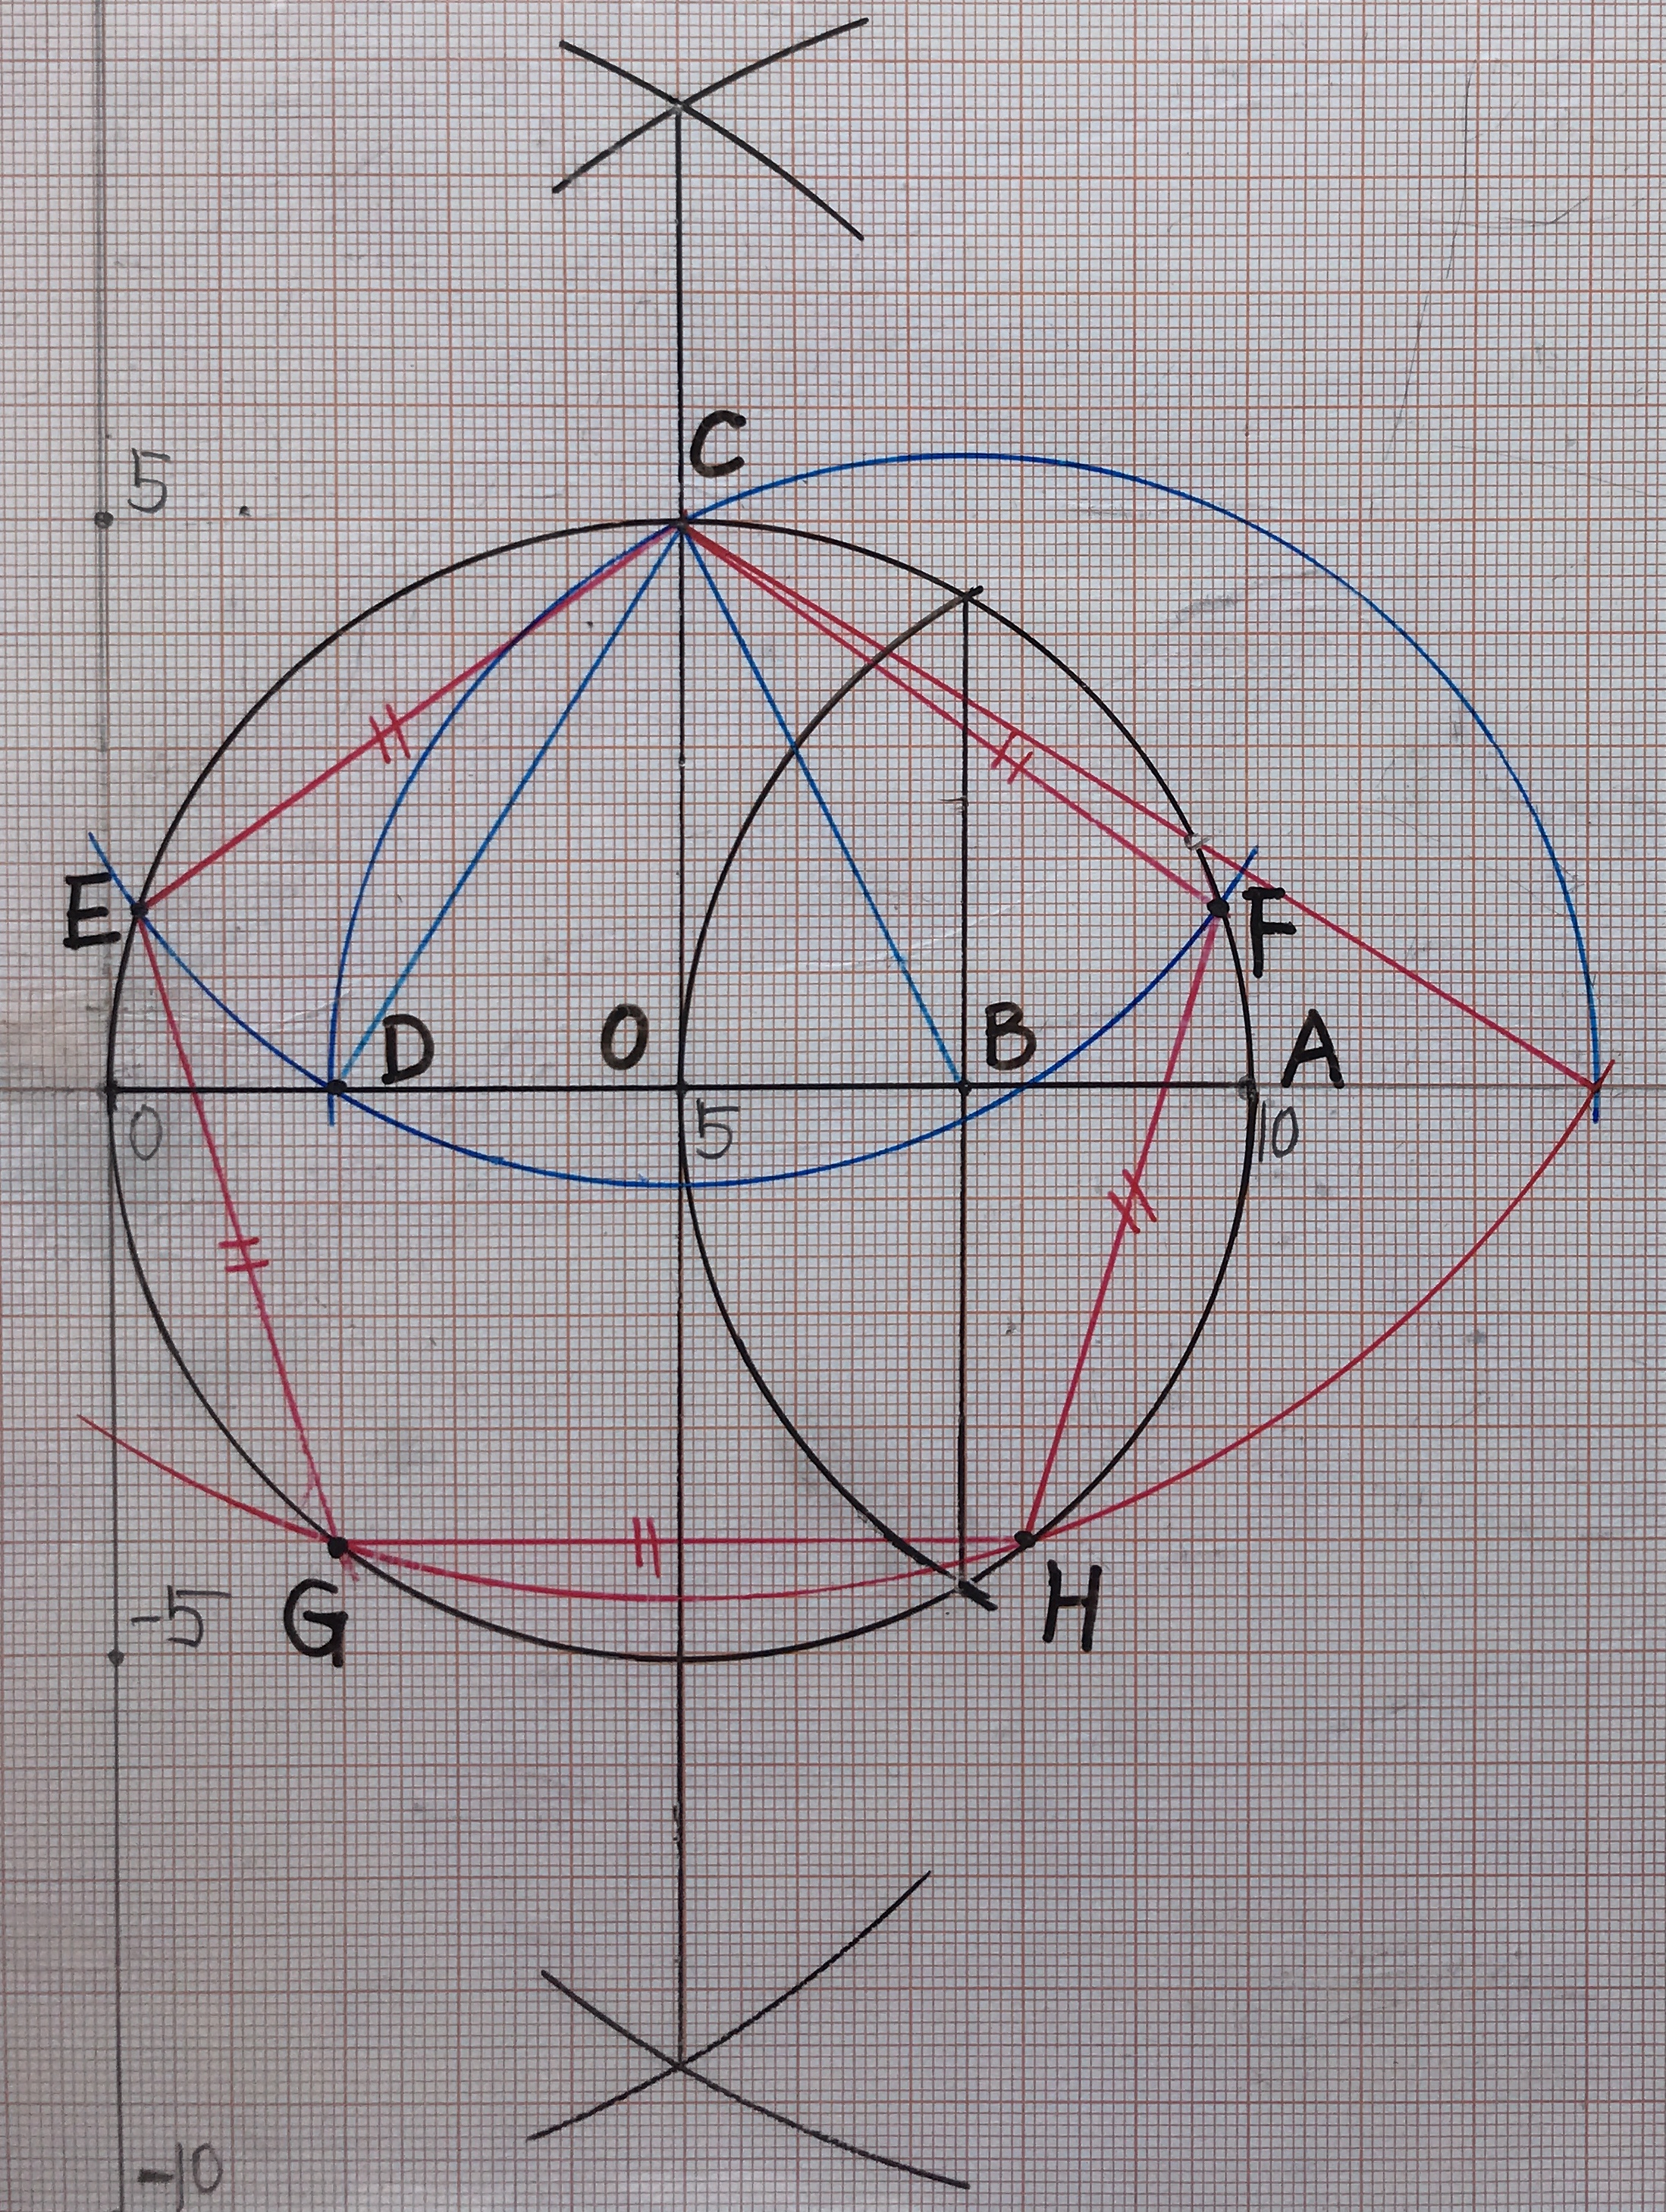 C
5
E
F
D
O
B
A
0
5
10
-5
G
H
-10